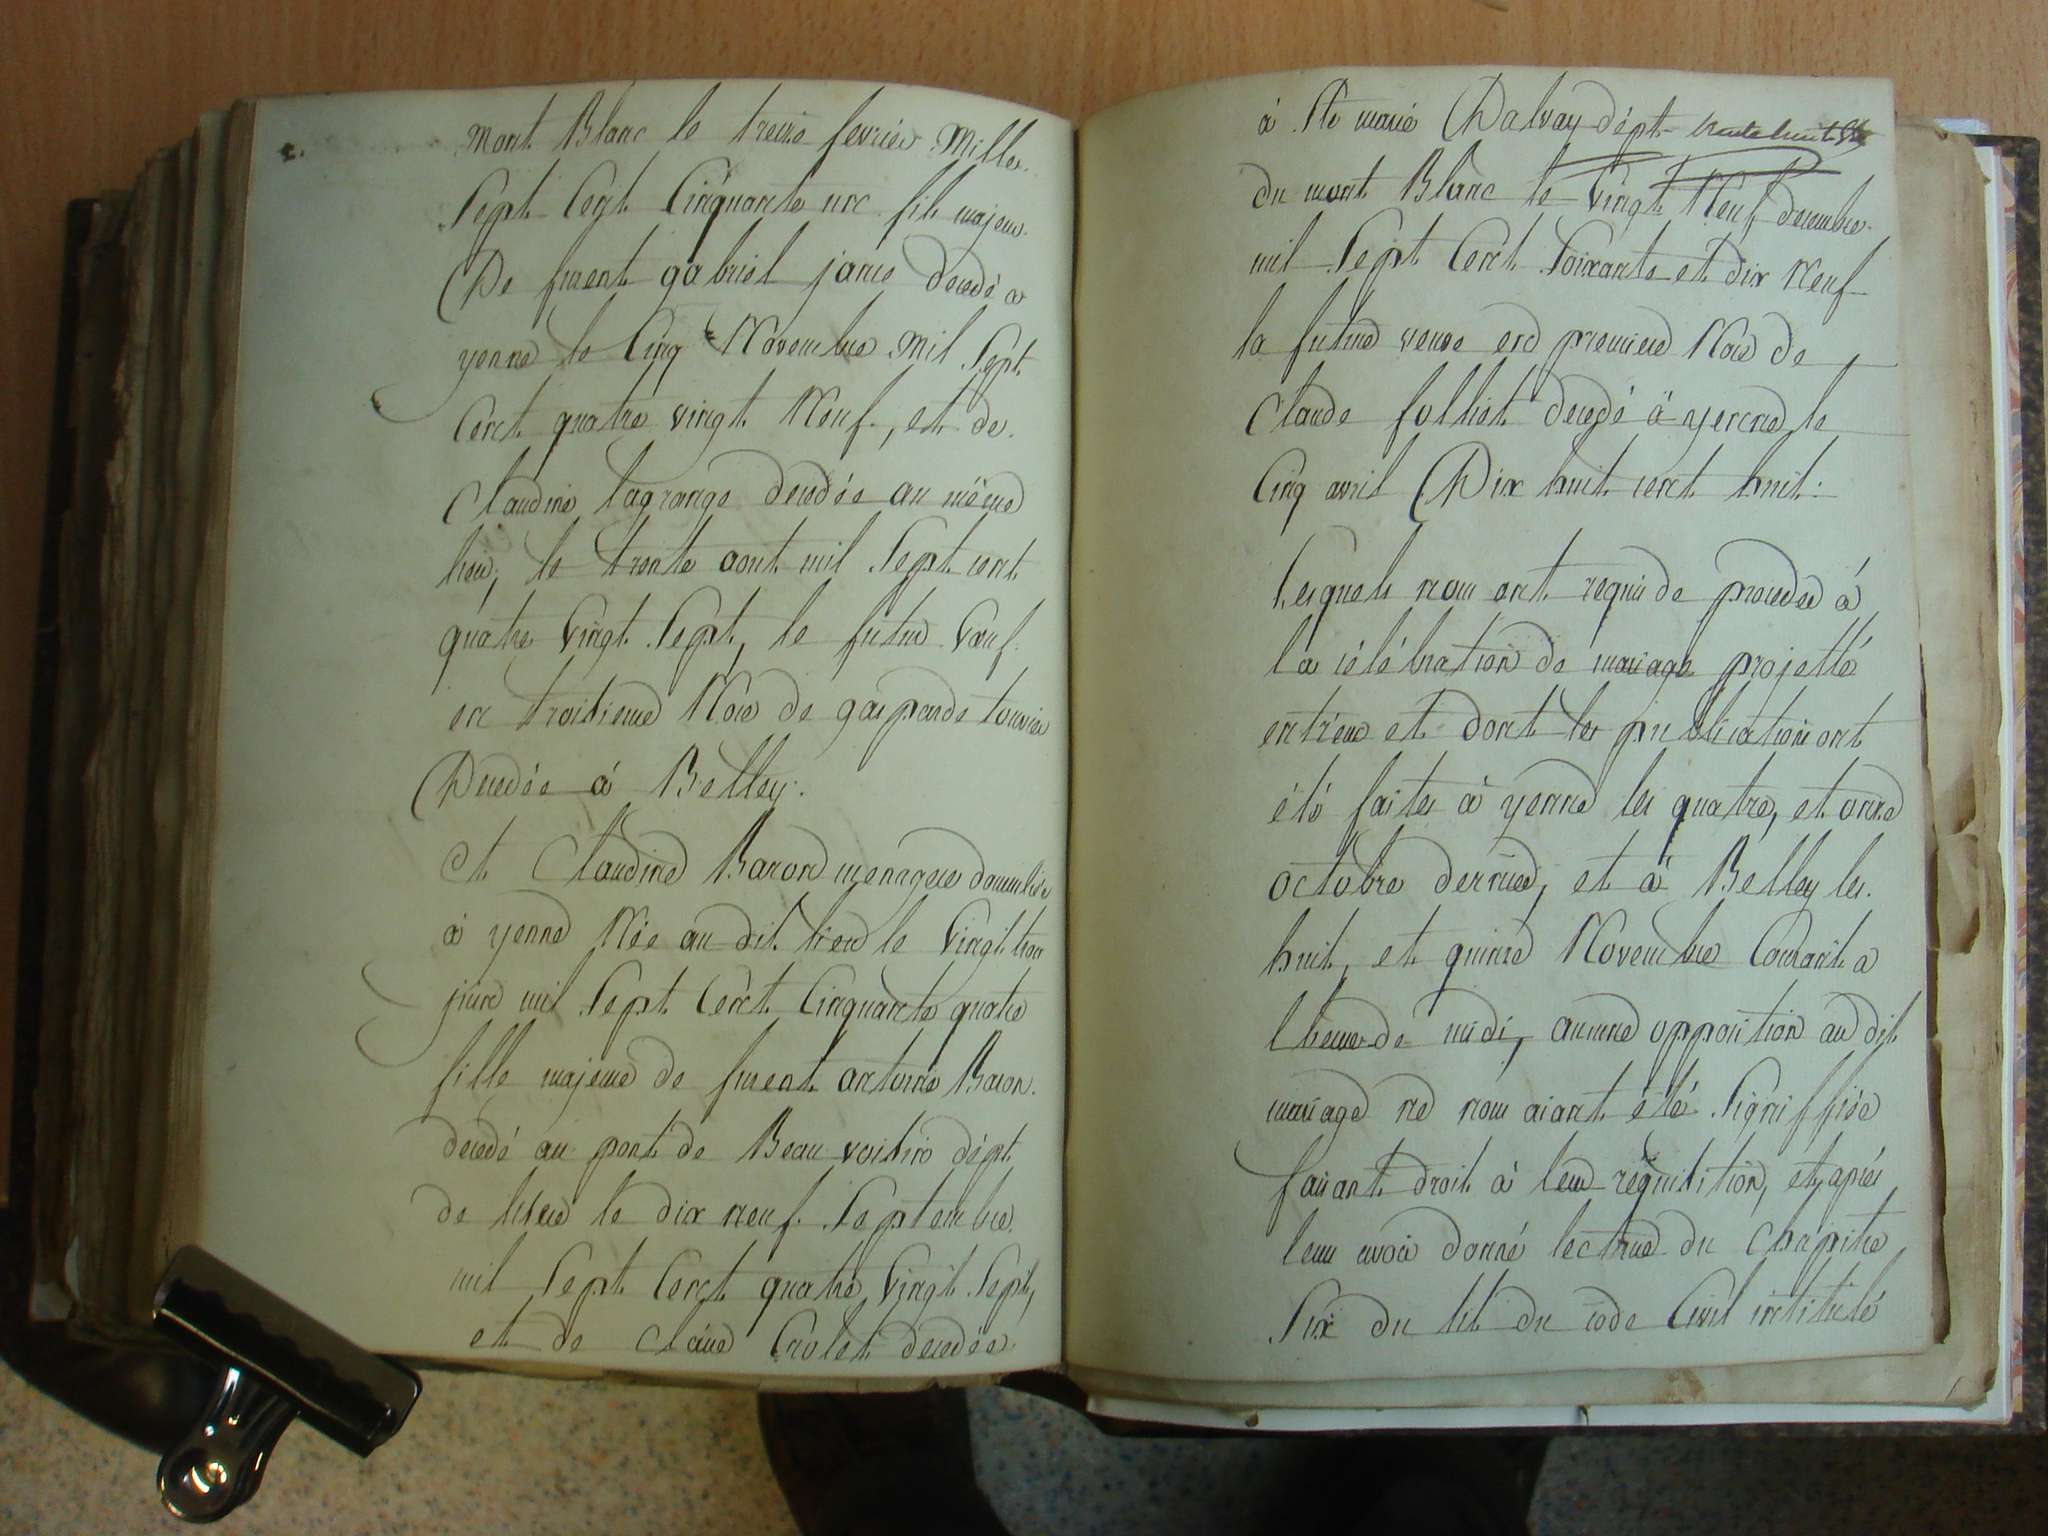 Mont Blanc le treize fevrier Mille
Sept Cent Cinquante un fils majeur
De feuent gabriel jance decedé a
yenne le Cinq Novembre Mil Sept
Cent quatre vingt Neuf, et de
Claudine lagrange decedée au même
lieu, le trente aout mil Sept cent
quatre Vingt Sept, le futur Vœuf
en troisieme Noce de gasparde touvier
Decedée à Belley.
Et Claudine Baron menagere domiciliée
à yenne Née au dit lieu le Vingt trois
juin mil Sept Cent Cinquante quatre
fille majeure de feuent antoine Baron
decedé au pont de Beau voisin dépt
de lisere le dix neuf Septembre
mil Sept Cent quatre Vingt Sept,
et de Claire Crolet decedée
à Ste marie Dalvay dépt trente huit
du mont Blanc le Vingt Neuf decembre
mil Sept Cent Soixante et dix Neuf
la future veuve en premiere Noce de
Claude folliet decedé à yenne le
Cinq avril Dix huit cent huit.
Lesquels nous ont requis de proceder à
la célébration de mariage projetté
entreux et dont les publications ont
été faites à yenne les quatre, et onze
octobre dernier, et à Belley les
huit, et quinze Novembre Courant a
lheure de midi, aucune opposition au dit
mariage ne nous aiant été Signiffiée
faisant droit à leur réquisition, et après
leur avoir donné lecture du Chapitre
Six du tit du code Civil intitulé